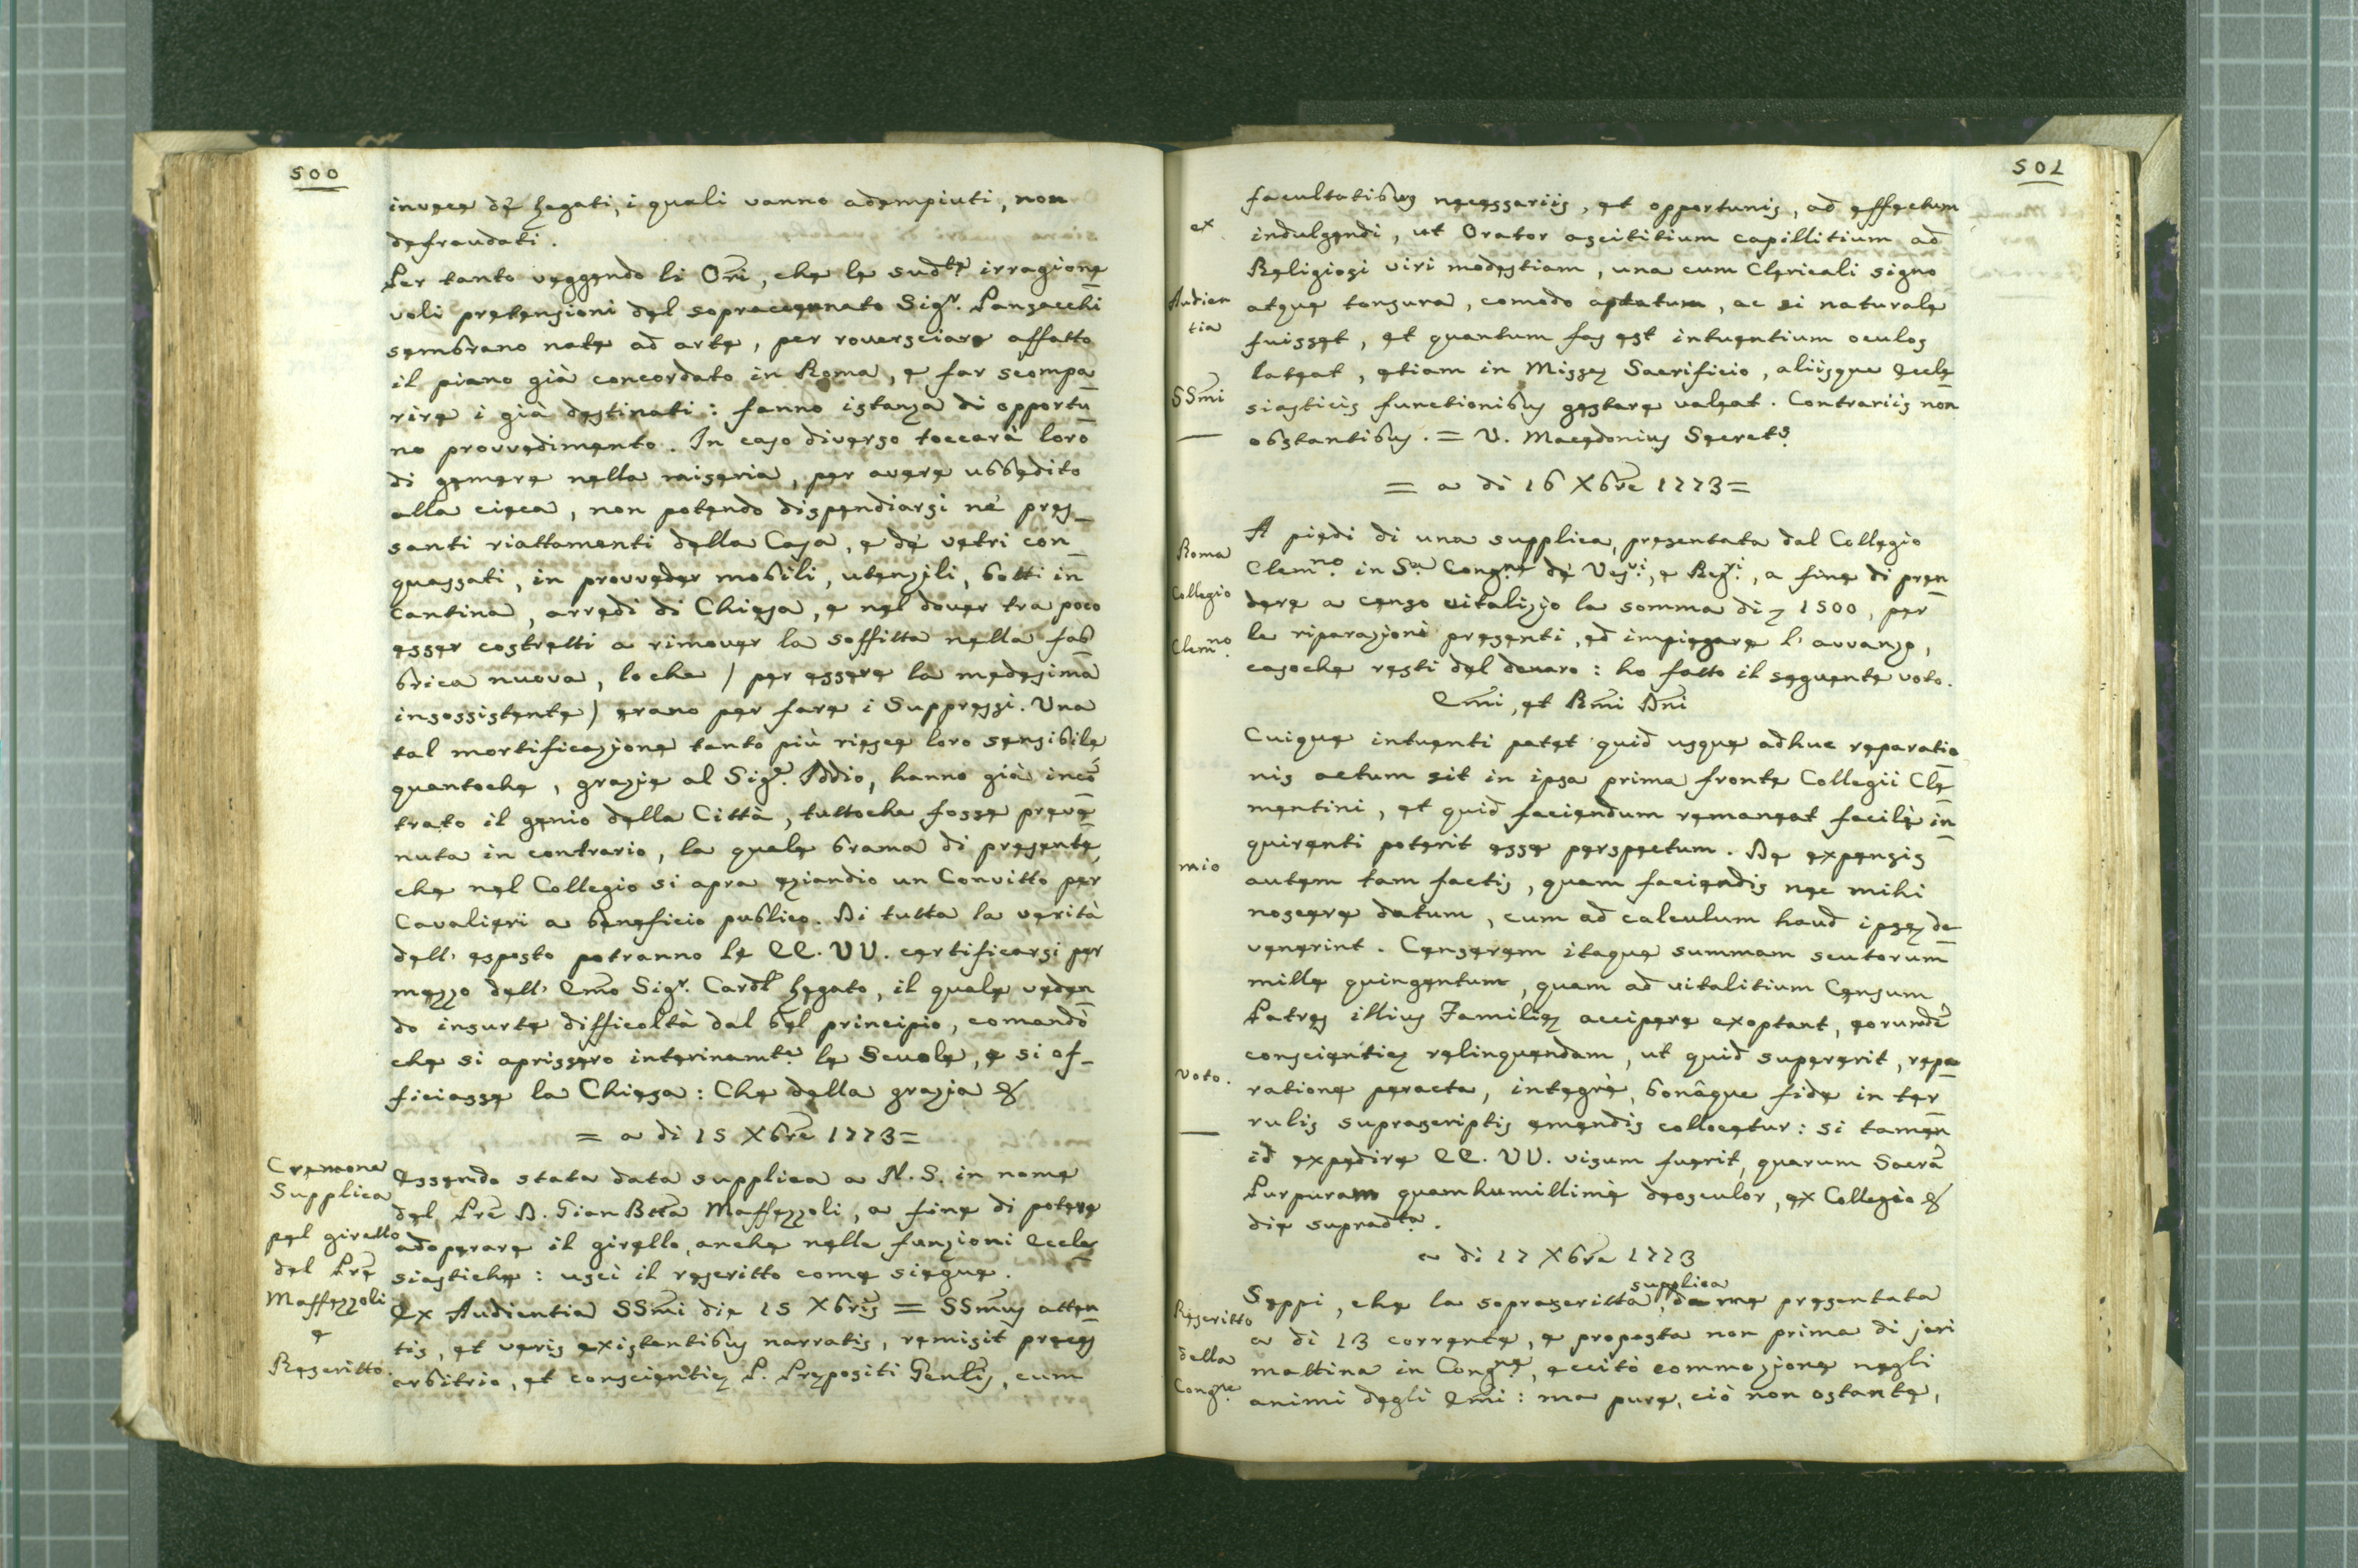 500
invece de' Legati, i quali vanno adempiuti, non
defraudati.
Per tanto veggendo li Ori, che le sudte irragione
voli pretensioni del sopracennato Sigr. Panzacchi
sembrano nate ad arte, per rouersciare affatto
il piano già concordato in Roma, e far scompa
rire i già destinati: fanno istanza di opportu
no provvedimento. In caso diverso toccarà loro
di gemere nella miseria, per avere ubbedito
alla cieca, non potendo dispendiarsi nè pres_
santi riattamenti della Casa, e de' vetri con_
quassati, in provveder mobili, utensili, botti in
Cantina, arredi di Chiesa, e nel dover tra poco
esser costretti a rimover la soffitta nella fab
brica nuova, loche / per essere la medesima
insossistente / erano per fare i Suppressi. Una
tal mortificazione tanto più riesce loro sensibile
quantoche, grazie al Sigr. Iddio, hanno già incō
trato il genio della Città, tuttoche fosse preve
nuta in contrario, la quale brama di presente,
che nel Collegio si apra eziandio un Convitto per
Cavalieri a beneficio publico. Di tutta la verità
dell' esposto potranno le EE. VV. certificarsi per
mezzo dell' Emo Sigr. Cardl Legato, il quale veden
do insurte difficoltà dal bel principio, comandò
che si aprissero interinamte le Scuole, e si of_
ficiasse la Chiesa: Che della grazia &
= a dì 15 Xbre 1773=
Cremona
Supplica
pel girello
del Pre
Maffezzoli
e
Rescritto.
Essendo stata data supplica a N. S. in nome
del Pre D. Gian Btta Maffezzoli, a fine di potere
adoperare il girello, anche nelle funzioni Eccle
siastiche: uscì il rescritto come siegue.
Ex Audientia SSmi die 15 Xbris = SSmus atten
tis, et veris existentibus narratis, remisit preces
arbitrio, et conscientię P. Prępositi Genlis, cum
501
ex
Audien
tia
SSmi
facultatibus necessariis, et opportunis, ad effectum
indulgendi, ut Orator ascititium capillitium ad
Religiosi viri modestiam, una cum Clericali signo
atque tonsura, comodo aptatum, ac si naturale
fuisset, et quantum fas est intuentium oculos
lateat, etiam in Missę Sacrificio, aliisque Eccle
siasticis functionibus gestare valeat. Contrariis non
obstantibus. = V. Macedonius Secrets
= a dì 16 Xbre 1773=
Roma
Collegio
Clemno.
mio
voto.
A piedi di una supplica, presentata dal Collegio
Clemno. in Sa Congne de' Vesvi, e Regri, a fine di pren
dere a censo vitalizio la somma di 1500, per
le riparazioni presenti, ed impiegare l' avvanzo,
casoche resti del denaro: ho fatto il seguente voto.
Emi, et Rmi Dni
Cuique intuenti patet quid usque adhuc reparatio
nis actum sit in ipsa prima fronte Collegii Cle
mentini, et quid faciendum remaneat facilè in
quirenti poterit esse perspectum. De expensis
autem tam factis, quam faciendis nec mihi
noscere datum, cum ad calculum haud ipsę de
venerint. Censerem itaque summam scutorum
mille quingentum, quam ad vitalitium Censum
Patres illius Familię accipere exoptant, eorundē
conscientię relinquendam, ut quid supererit, repa
ratione peracta, integrè, bonâque fide in ter
rulis suprascriptis emendis collocetur: si tamen
id expedire EE. VV. visum fuerit, quarum Sacrā
Purpuram quam humillimè deosculor, ex Collegio &
die supradta.
a dì 17 Xbre 1773
Rescritto
della
Congne.
supplica
Seppi, che la soprascritta, da me presentata
a dì 13 corrente, e proposta non prima di jeri
mattina in Congne, eccitò commozione negli
animi degli Emi: ma pure, ciò non ostante,